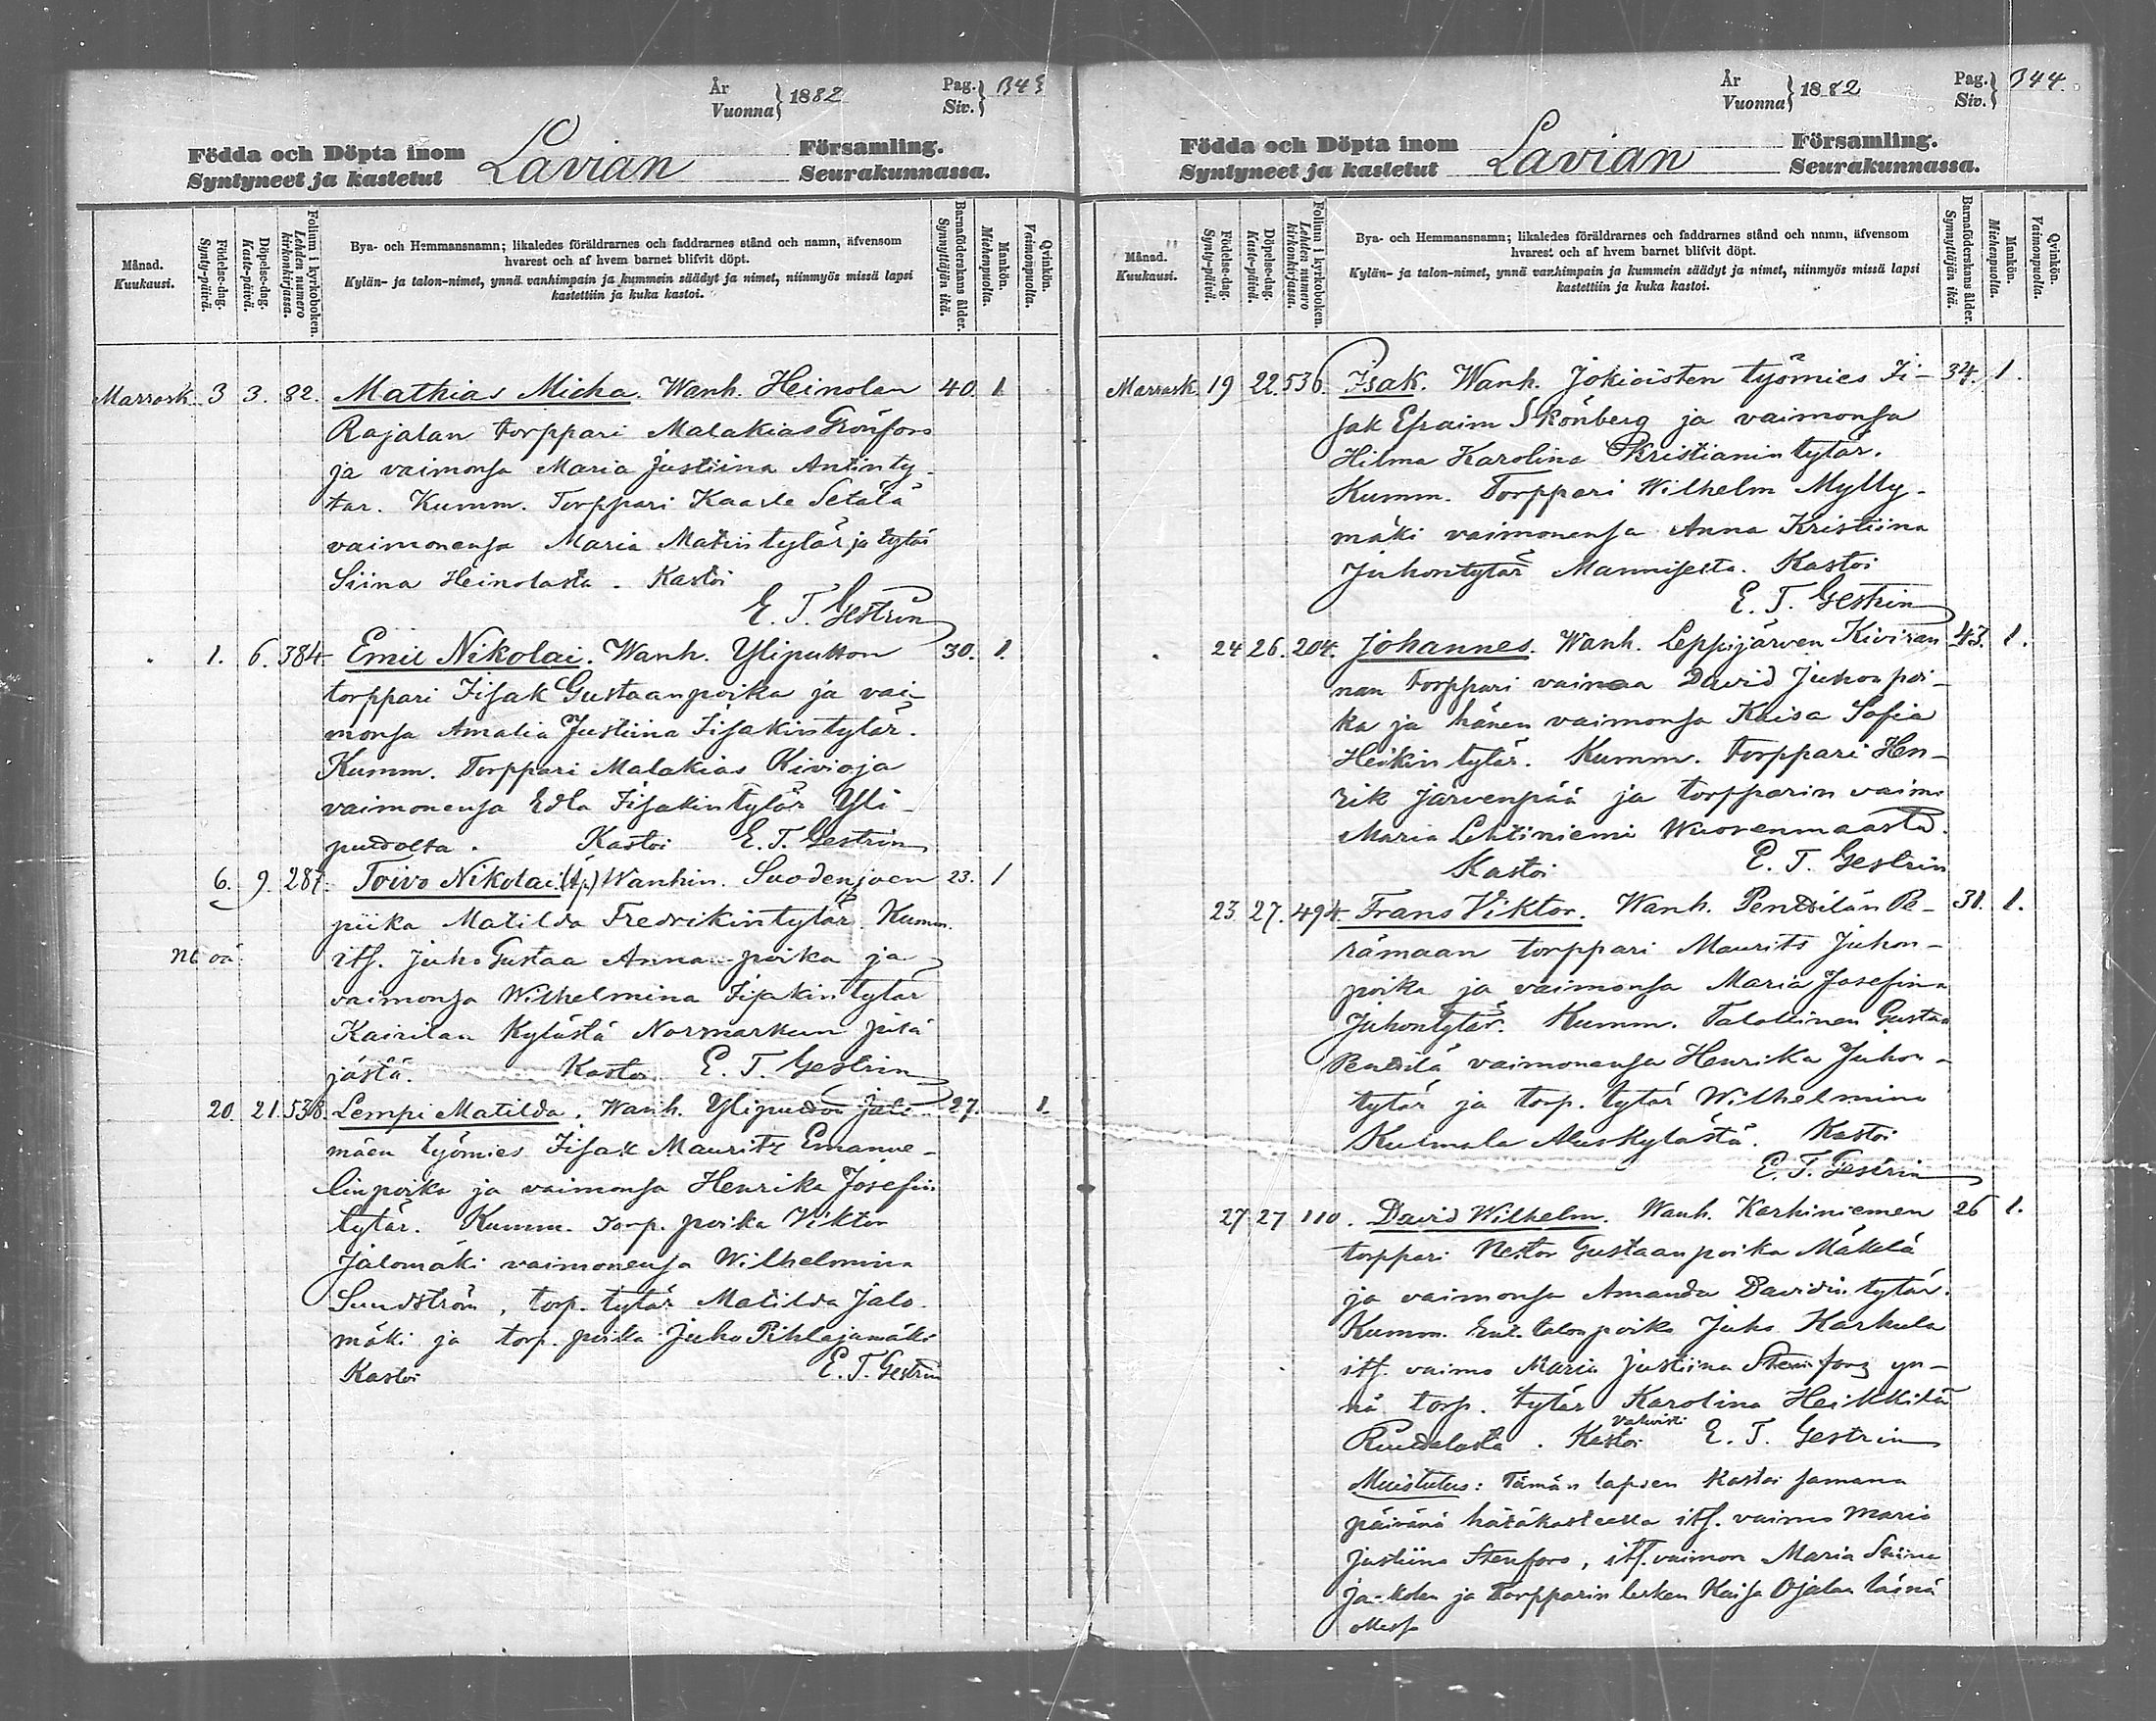 År
Vuonna } 1882
Pag.
Siv. } 343
Födda och Döpta inom
Syntyneet ja kastetut
Lavian
Församling.
Seurakunnassa.
Månad.
Kuukausi.
Födelse-dag.
Synty-päivä.
Döpelse-dag.
Kaste-päivä.
Folium i kyrkoboken.
Lehden numero kirkonkirjassa.
Bya- och Hemmansnamn; likaledes föräldrarnes och faddrarnes stånd och namn, äfvensom
hvarest och af hvem barnet blifvit döpt.
Kylän- ja talon-nimet, ynnä vanhimpain ja kummein säädyt ja nimet, niinmyös missä lapsi
kastettiin ja kuka kastoi.
Barnaföderskans ålder.
Synnyttäjän ikä.
Mankön.
Miehenpuolia.
Qvinkön.
Vaimonpuolia.
Marrask. 3 3. 82. Mathias Micha. Wanh. Heinolan 40. 1
Rajalan torppari Malakias Grönfors
ja vaimonsa Maria Justiina Antinty-
tar. Kumm. Torppari Kaarle Setälä
vaimonensa Maria Matintytär ja tytär
Siina Heinolasta. Kastoi
E. T. Gestrin
1. 6. 384. Emil Nikolai. Wanh. Ylipuston 30. 1.
torppari Iisak Gustaanpoika ja vai-
monsa Amalia Justiina Iisakintytär.
Kumm. Torppari Malakias Kivioja
vaimonensa Edla Iisakintytär Yli-
Kastoi E. T. Gestrin
6. 9. 287. Toivo Nikolai (Äp.) Wanhin. Suodenjoen 23. 1
piika Matilda Fredrikintytär. Kumm.
its. Juho Gustaa Annanpoika ja
vaimonsa Wilhelmina Iisakintytär
Kairilan Kylästä Normarkun pitä
jästä. Kastoi E. T. Gestrin
20. 21. 538. Lempi Matilda. Wanh. Ylipuddon Jalo- 27. 1
mäen työmies Iisak Maurits Emanue-
linpoika ja vaimonsa Henrika Josefin
tytär. Kumm. Torp. poika Viktor
Jalomäki vaimonensa Wilhelmina
Sundström, torp. tytär Matilda Jalo-
mäki ja torp. poika Juho Pihlajamäki
Kastoi E. T. Gestrin
År
Vuonna } 1882
Pag.
Siv. } 344.
Födda och Döpta inom
Syntyneet ja kastetut
Lavian
Församling.
Seurakunnassa.
Månad.
Kuukausi.
Födelse-dag.
Synty-päivä.
Döpelse-dag.
Kaste-päivä.
Folium i kyrkoboken.
Lehden numero kirkonkirjassa.
Bya- och Hemmansnamn; likaledes föräldrarnes och faddrarnes stånd och namn, äfvensom
hvarest och af hvem barnet blifvit döpt.
Kylän- ja talon-nimet, ynnä vanhimpain ja kummein säädyt ja nimet, niinmyös missä lapsi
kastettiin ja kuka kastoi.
Barnaföderskans ålder.
Synnyttäjän ikä.
Mankön.
Miehenpuolia.
Qvinkön.
Vaimonpuolia.
Marrask. 19 22. 536. Iisak. Wanh. Jokioisten työmies Ii- 34. 1.
sak Efraim Skönberg ja vaimonsa
Hilma Karolina Kristianintytär.
Kumm. Torppari Wilhelm Mylly-
mäki vaimonensa Anna Kristiina
Juhontytär Mannisesta. Kastoi
E. T. Gestrin
24 26. 204. Johannes. Wanh. Leppijärven Kiviran 43. 1.
nan torppari vainaa David Juhonpoi-
ka ja hänen vaimonsa Kaisa Sofia
Heikintytär. Kumm. torppari Hen-
rik Järvenpää ja torpparin vaimo
Maria Lehtiniemi Wuorenmaasta.
Kastoi E. T. Gestrin
23. 27. 494. Frans Viktor. Wanh. Penttilän Pe- 31. 1.
rämaan torppari Maurits Juhon-
poika ja vaimonsa Maria Josefina
Juhontytär. Kumm. Talollinen Gustaa
Penttilä vaimonensa Henrika Juhon-
tytär ja torp. tytär Wilhelmina
Kulmala Aluskylästä. Kastoi
E. T. Gestrin
27 27 110. David Wilhelm. Wanh. Karhiniemen 26 1.
torppari Nestor Gustaanpoika Mäkelä
ja vaimonsa Amanda Davidintytär.
Kumm. Ent. talonpoika Juho Karhula
its. vaimo Maria Justiina Stenfors yn-
nä torp. tytär Karolina Heikkilä
Ruudalasta. Kastoi vahvisti E. T. Gestrin
Muistutus: Tämän lapsen kastoi samana
päivänä hätäkasteella its. vaimo Maria
Justiina Stenfors, its. vaimon Maria Stiina
ja torpparin lesken Kaisa Ojalan läsnä
ollessa